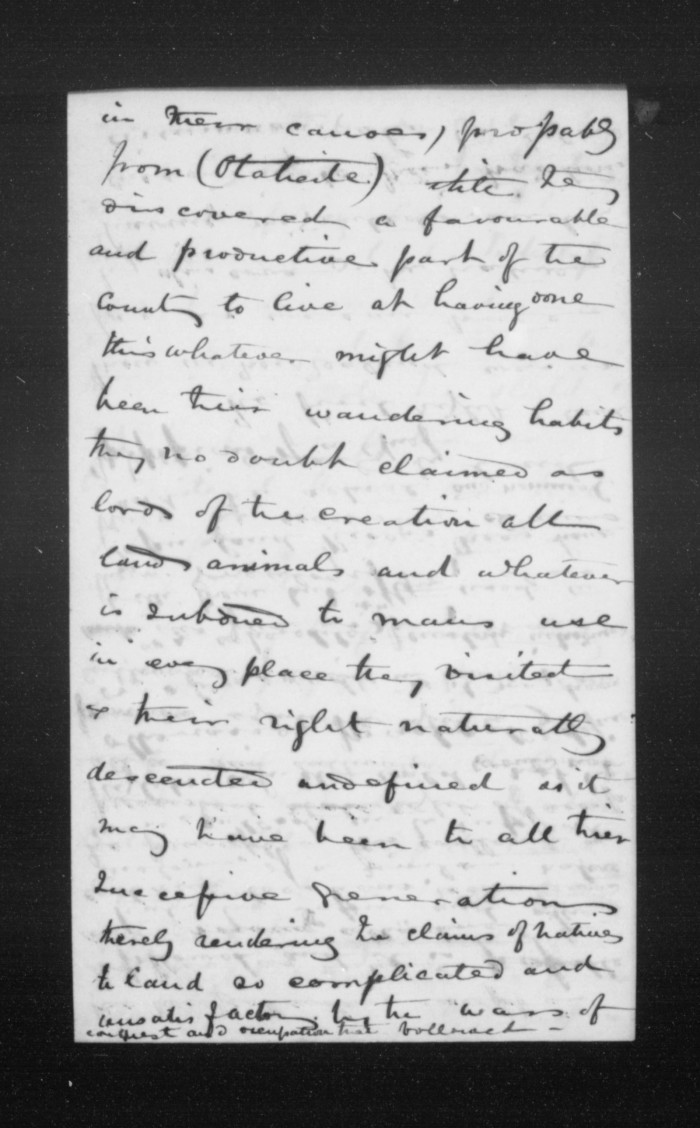 in their canoes, propably
from (Otaheite) till they
discovered a favourable
and productive part of the
country to live at having done
this whatever might have
been their wandering habits
they no doubt claimed as
lords of the creation all
lands animals and whatever
is subdued to mans use
in every place they visited
& their right naturally
descended undefined as it
may have been to all their
Succesive generations
thereby rendering the claims of natives
to land so complicated and
unsatisfactory by the wars of
conquest and occupation that